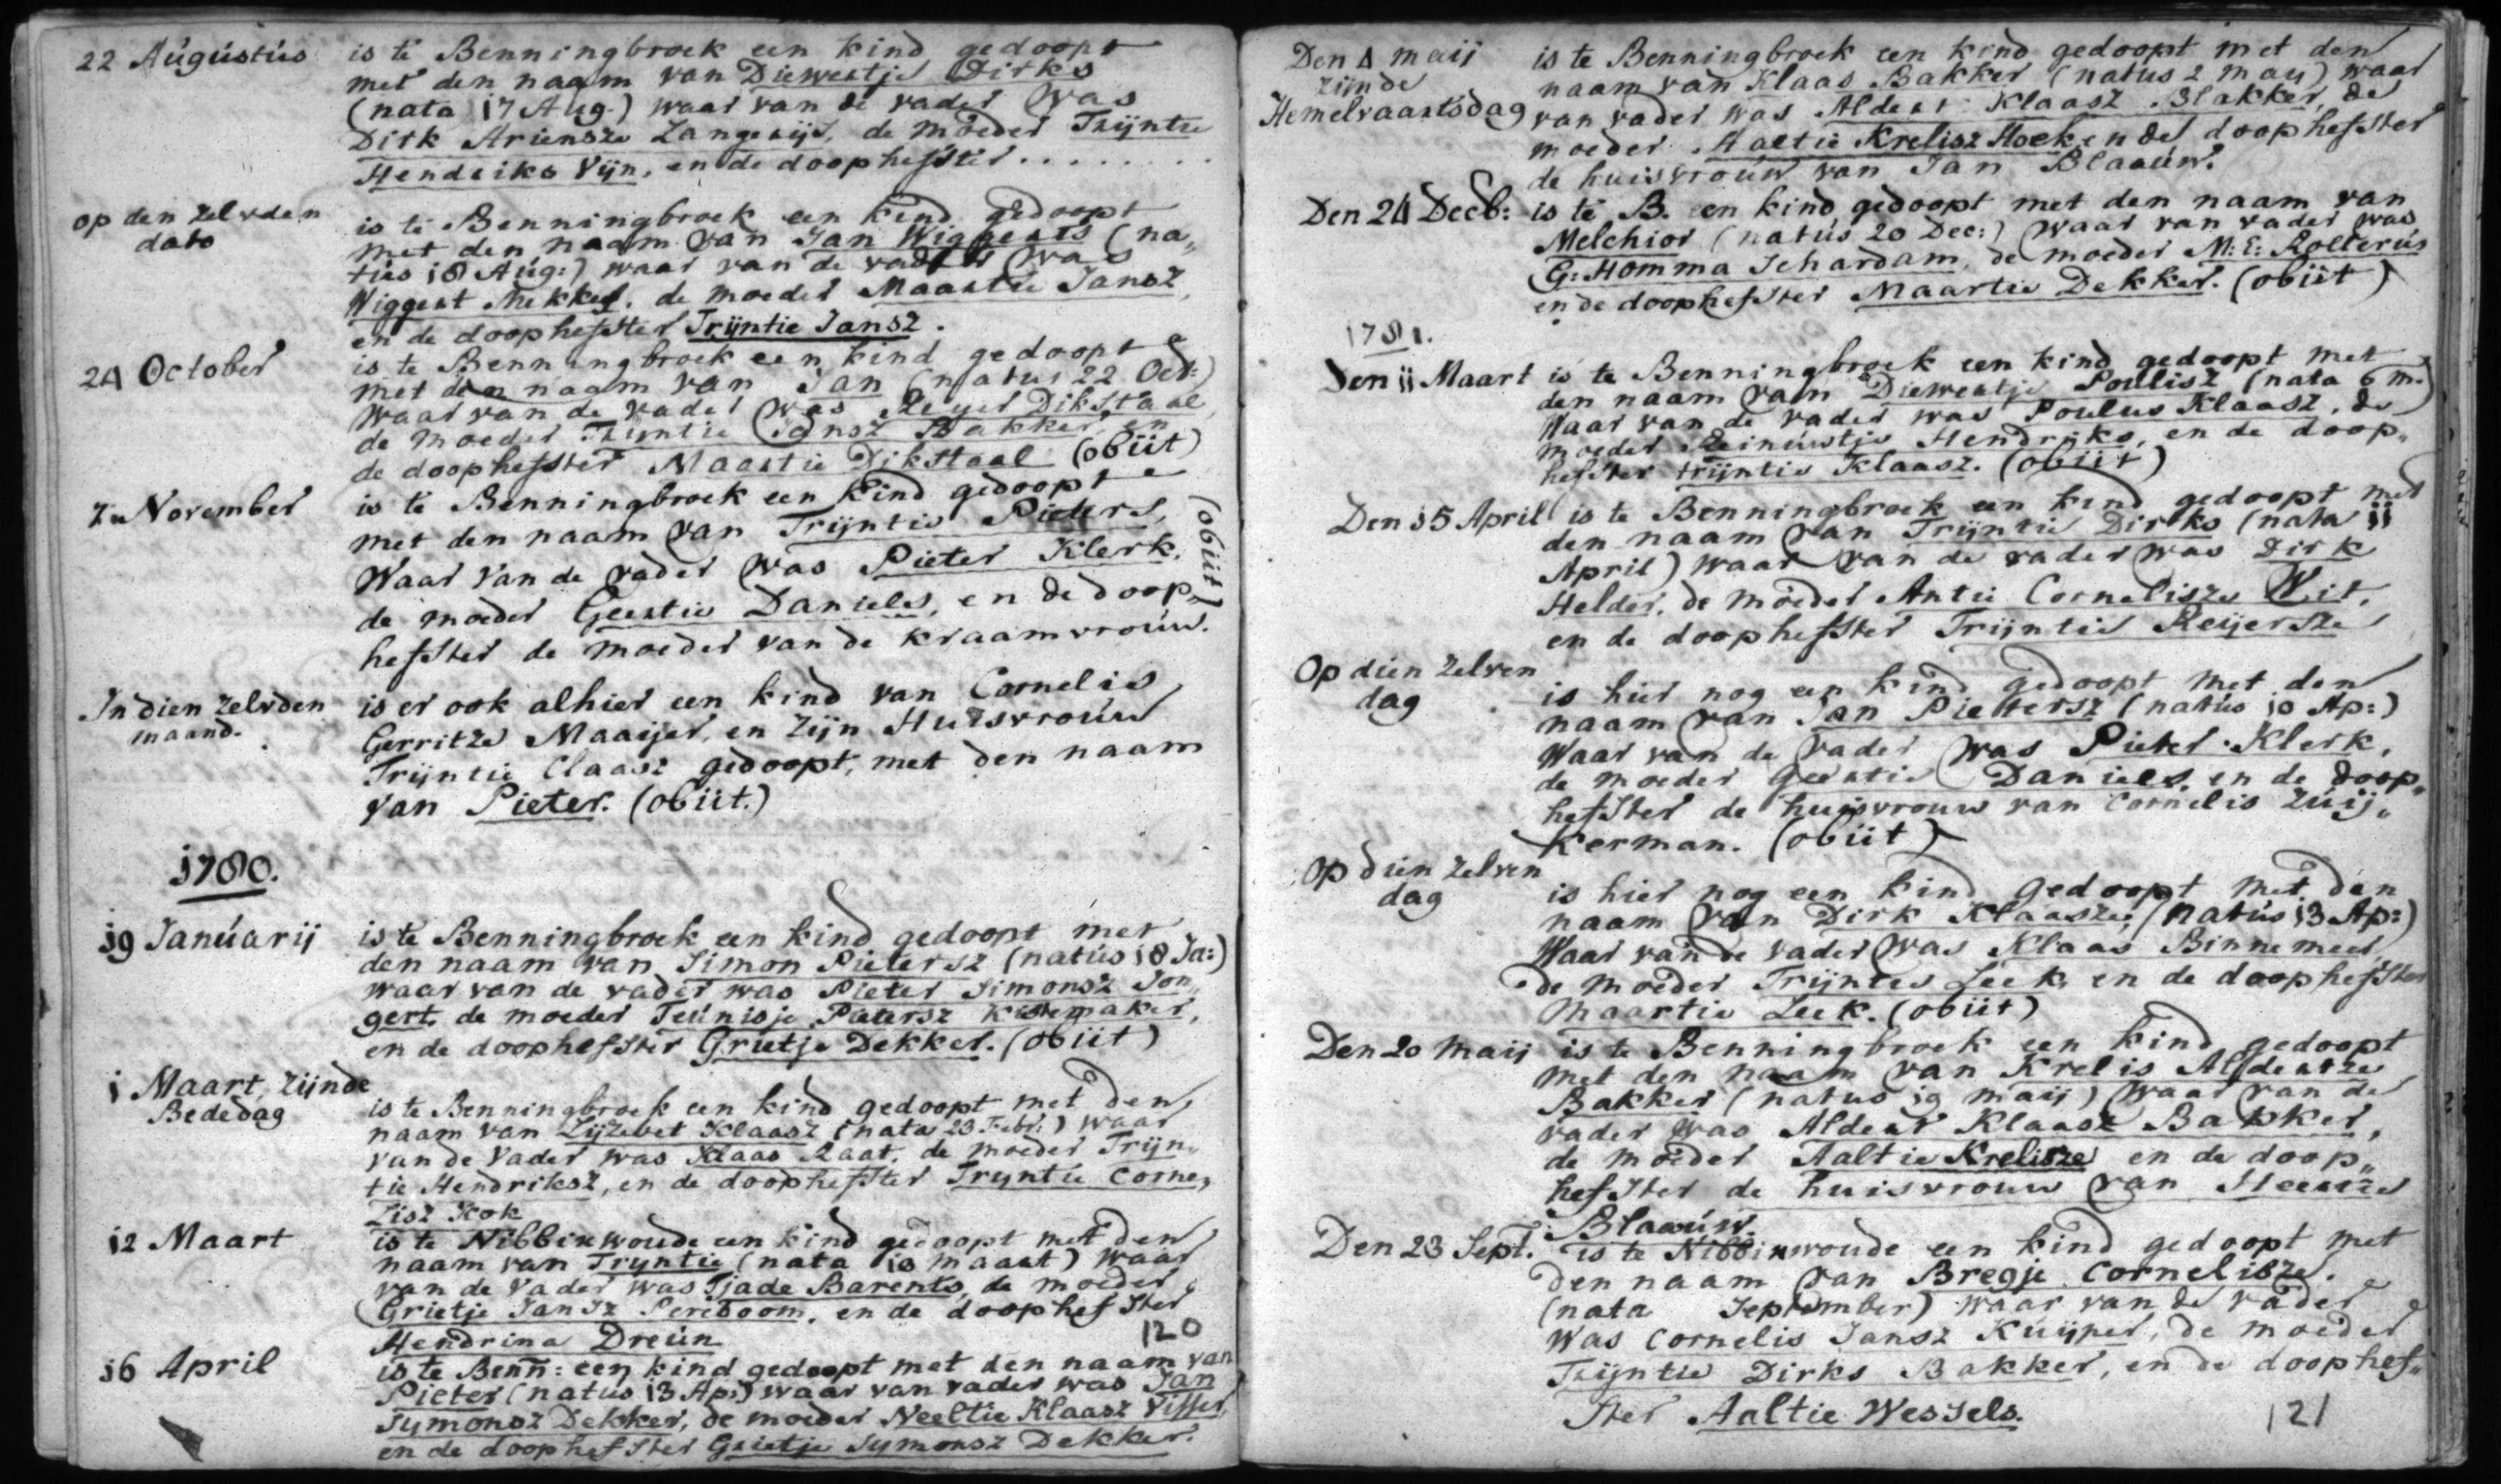 22 Augústús is te Benningbroek een kind gedoopt
met den naam van Diewertje Dirks
(nata 17 Aug.) waar van de vader was
Dirk Ariensze Langereijs, de moeder Trijntie
Hendriks Vijn, en de doophefster . . . . . . . .
op den zelvden dato is te Benningbroek een kind gedoopt
met den naam van Jan Wiggerts (na„
tús 18 Aúg:) waar van de vader was
Wiggert Mekkes, de moeder Maartie Jansz,
en de doophefster Trijntie Jansz.
24 October is te Benningbroek een kind gedoopt
met den naam van Jan (natus 22 Oct:)
waar van de vader was Reyer Dikstaal
de moeder Trijntie Jansz Bakker, en
de doophefster Maartie Dikstaal (obiit)
7 November is te Benningbroek een kind gedoopt
met den naam van Trijntie Pieters,
Waar van de vader was Pieter Klerk,
de moeder Geertie Daniels, en de doop„
hefster de moeder van de kraamvroúw.
(obiit)
In dien zelvden maand. is er ook alhier een kind van Cornelis
Gerritze Maaijer, en zijn Huisvroúw
Trijntie Claasz gedoopt, met den naam
van Pieter. (obiit.)
1780.
19 Janúarij is te Benningbroek een kind gedoopt met
den naam van Simon Pietersz (natús 18 Ja:)
waar van de vader was Pieter Simonsz Jon„
gert, de moeder Teúnisje Pietersz Kistemaker,
en de doophefster Grietje Dekker. (obiit)
1 Maart, zijnde Bededag is te Benningbroek een kind gedoopt met den
naam van Lijzebet Klaasz (nata 23 Febr:) waar
van de Vader was Klaas Raat, de moeder Trijn„
tie Hendriksz, en de doophefster Tryntie Corne„
lisz Kok
12 Maart is te Nibbixwoude een kind gedoopt met den
naam van Tryntie (nata 10 Maart) waar
van de Vader was Tjade Barents, de moeder
Grietje Jansz Pereboom, en de doophefster
Hendrina Dreún
120
16 April is te Benn: een kind gedoopt met den naam van
Pieter (natus 13 Ap:) waar van vader was Jan
Symonsz Dekker, de moeder Neeltie Klaasz Visser,
en de doophefster Grietje Symonsz Dekker.
Den 4 maij is te Benningbroek een kind gedoopt met den
zijnde naam van Klaas Bakker (natús 2 may) waar
Hemelvaartsdag van vader was Aldert Klaasz Bakker, de
moeder Aaltie Krelisz Hoek en de doophefster
de huisvroúw van Jan Blaaúw.
Den 24 Decb: is te B. een kind gedoopt met den naam van
Melchior (natús 20 Dec:) waar van vader was
G: Homma Schardam, de moeder M: E: Rolterús
en de doophefster Maartie Dekker. (obiit)
1781.
Den 11 Maart is te Benningbroek een kind gedoopt met
den naam van Diewertje Poulisz (nata 6 m.)
Waar van de vader was Poulus Klaasz, de
moeder Reinúwtje Hendriks, en de doop„
hefster trijntie Klaasz. (obiit)
Den 15 April is te Benningbroek een kind gedoopt met
den naam van Trijntie Dirks (nata 11
April) waar van de vader was Dirk
Helder, de moeder Antie Cornelisze Wit,
en de doophefster Trijntie Reijersze
Op dien zelven dag is hier nog een kind gedoopt met den
naam van Jan Pietersz (natús 10 Ap:)
Waar van de vader was Pieter Klerk,
de moeder geertie Daniels, en de doop„
hefster de huisvrouw van Cornelis Zúij„
kerman. (obiit)
Op dien zelven dag is hier nog een kind gedoopt met den
naam van Dirk Klaasze, (natús 13 Ap:)
Waar van de vader was Klaas Binnemeer
de moeder Trijntie Leek, en de doophefster
Maartie Leek. (obiit)
Den 20 Maij is te Benningbroek een kind gedoopt
met den naam van Krelis Aldertze
Bakker (natus 19 maij) waar van de
vader was Aldert Klaasz Bakker,
de moeder Aaltie Krelisze en de doop„
hefster de huisvrouw van
Blaaúw.
Den 23 Sept. is te Nibbixwoude een kind gedoopt met
den naam van Bregje Cornelisze.
(nata September) waar van de vader
was Cornelis Jansz Kúijper, de moeder
Trijntie Dirks Bakker, en de doophef„
ster Aaltie Wessels.
121